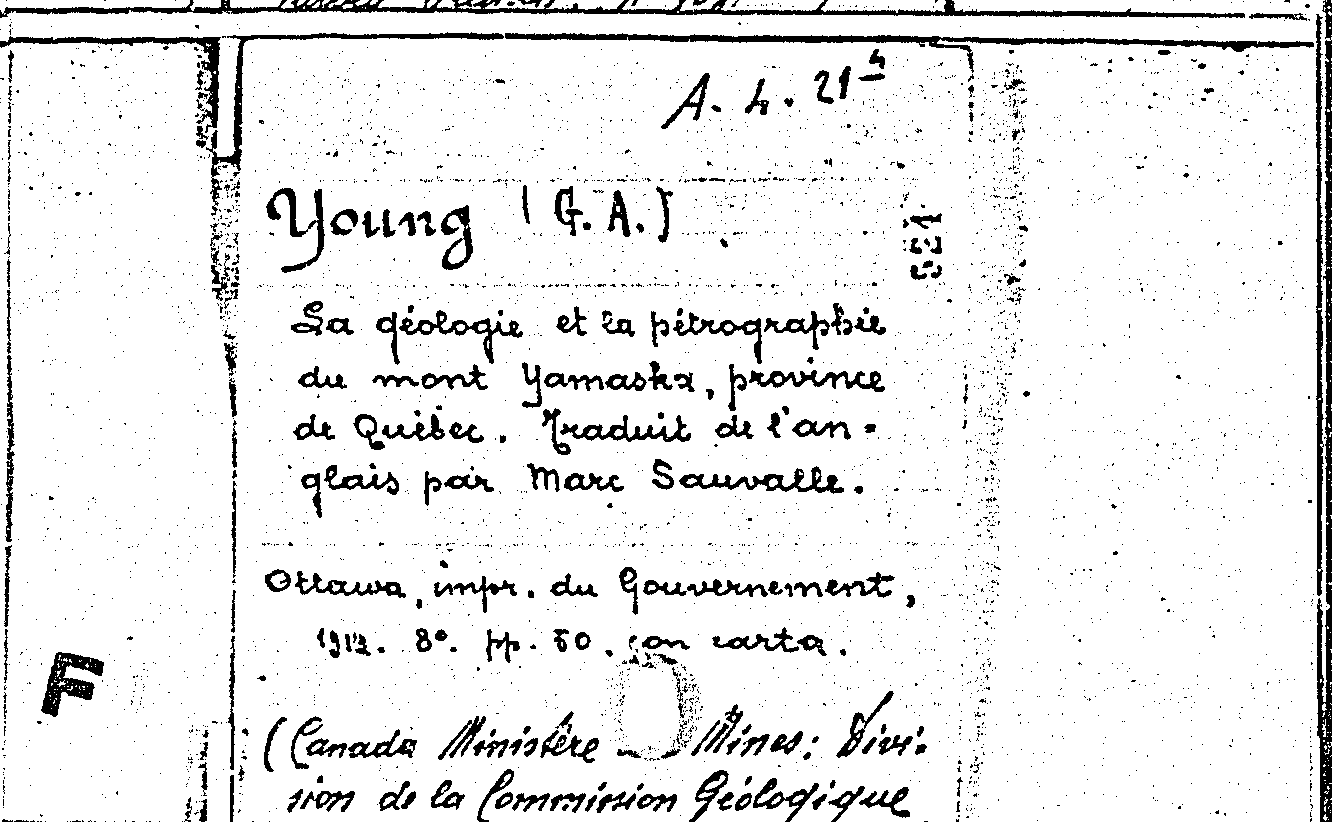 A. 4. 21⁴
Young (G. A.)
La géologie et la pétrographie
du mont Yamaska, province
de Québec. Traduit de l'an=
glais par Marc Sauvalle.
Ottawa, impr. du Gouvernement,
8°. pp. 50. con carta.
F
(Canada Ministère Mines: Divi-
sion de la Commission Géologique